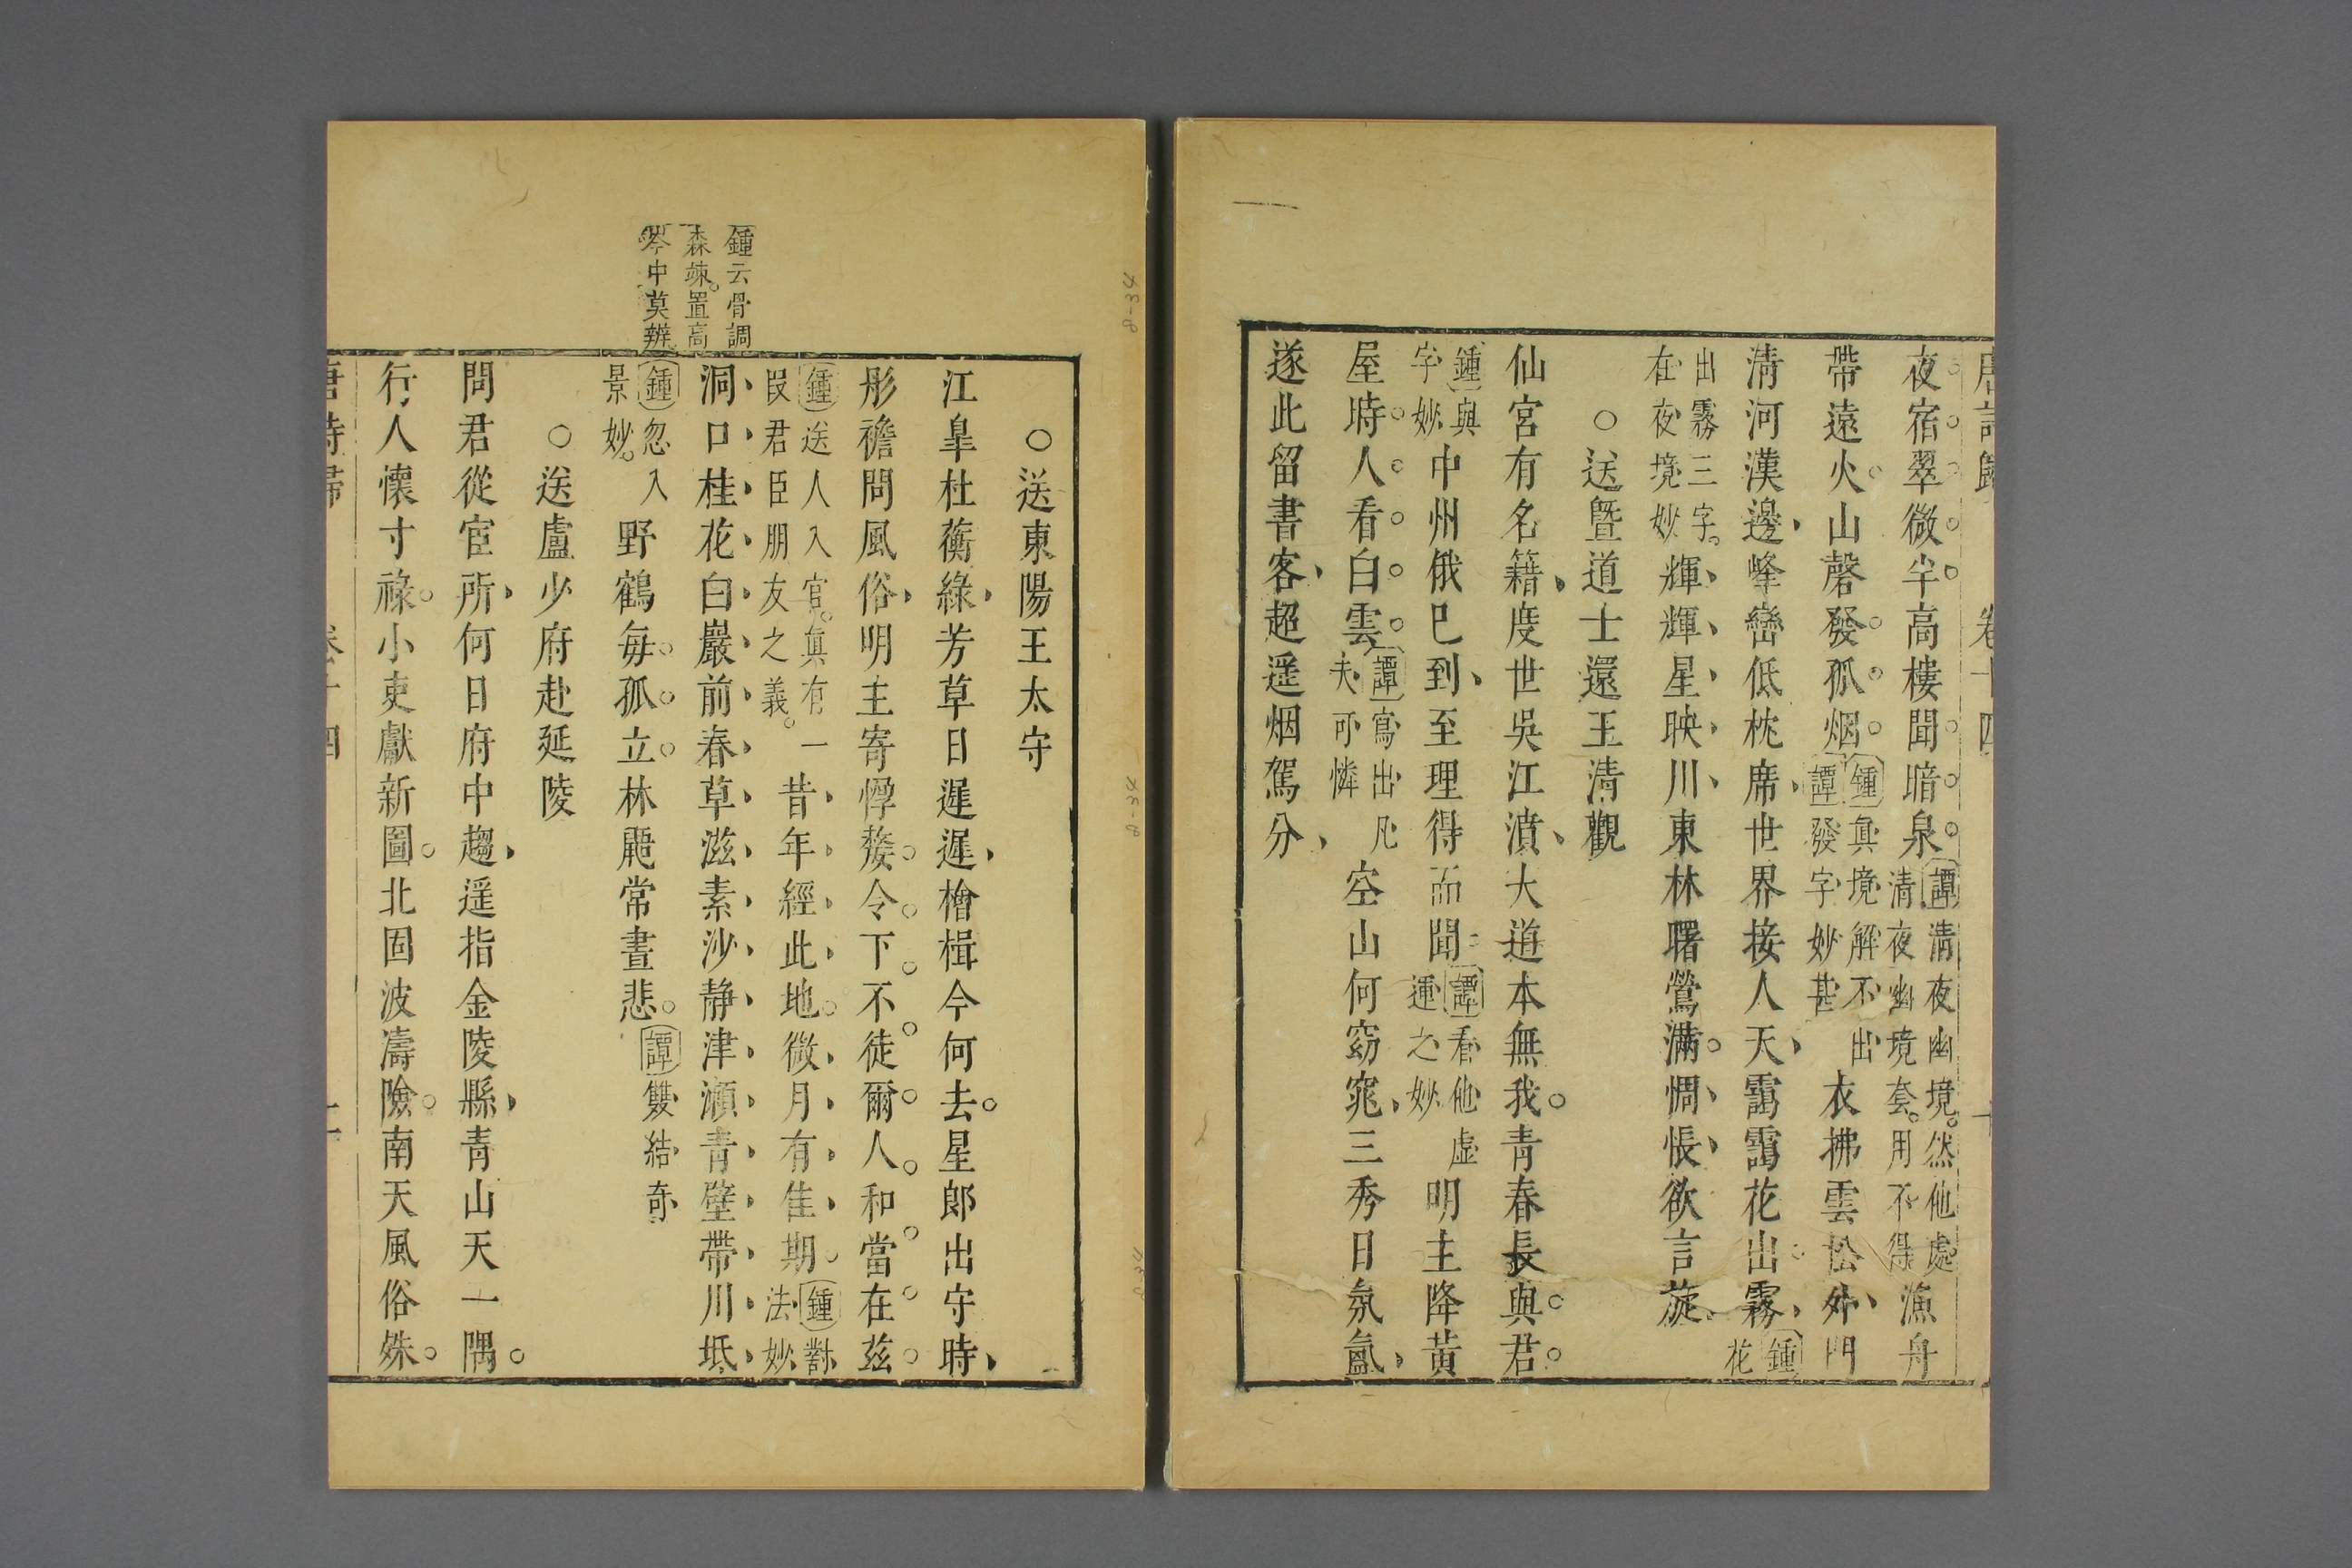 唐詩歸 卷十四 十
夜宿翠微半高樓聞暗泉譚清夜幽境然他處清夜幽境套用不得漁舟
帶遠火山磬發孤烟鍾真境解不出譚發字妙甚衣拂雲松外門
清河漢邊峰巒低枕席世界接人天靄靄花出霧鍾花
出霧三字在夜境妙輝輝星映川東林曙鶯滿惆悵欲言旋
○送暨道士還玉清觀
仙宮有名籍度世吳江濆大道本無我青春長與君
鍾與字妙中州俄已到至理得而聞譚看他虛運之妙明主降黃
屋時人看白雲譚寫出凡夫可憐空山何窈窕三秀日氛氳
遂此留書客超遥烟駕分
○送東陽王太守
江皐杜蘅綠芳草日遲遲檜楫今何去星郎出守時
彤襜問風俗明主寄惸嫠令下不徒爾人和當在茲
鍾送人入官真有一叚君臣朋友之義昔年經此地微月有佳期鍾對法妙
洞口桂花白巖前春草滋素沙静津瀨青壁帶川坻
鍾忽入景妙野鶴每孤立林鼯常晝悲譚雙結奇
鍾云骨調
森竦置高
岑中莫辨
○送盧少府赴延陵
問君從宦所何日府中趨遥指金陵縣青山天一隅
行人懷寸祿小吏獻新圖北固波濤險南天風俗殊
唐詩歸 卷十四 十一